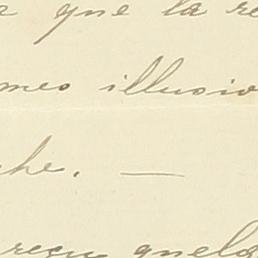 que la re
mes illusio
che. —
reçu quelq